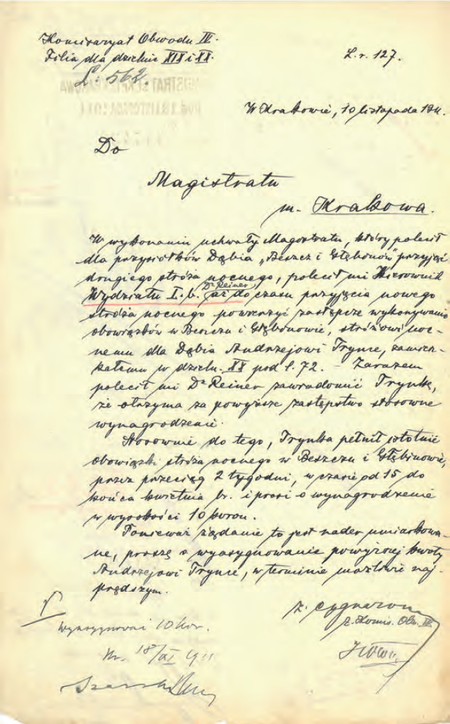 Komisaryat Obwodu IV.
Filia dla dzielnic XIX i XX.
L: 562.
L. r. 127.
W Krakowie, 10 listopada 1911.
Do
Magistratu
m. Krakowa.
W wykonaniu uchwały Magistratu, który polecił
dla przysiołków Dąbia „Beszcz i Głębinów" przyjąć
drugiego stróża nocnego, polecił mi Kierownik
Wydziału I.b. Dr Reiner aż do czasu przyjęcia nowego
stróża nocnego poruczyć zastępcze wykonywanie
obowiązków w Beszczu i Głębinowie, stróżowi noc-
nemu dla Dąbia Andrzejowi Trynce, zamiesz-
kałemu w dzieln. XX pod l. 72. – Zarazem
polecił mi Dr Reiner zawiadomić Trynkę,
że otrzyma za powyższe zastępstwo stosowne
wynagrodzenie.
Stosownie do tego, Trynka pełnił istotnie
obowiązki stróża nocnego w Beszczu i Głębinowie,
przez przeciąg 2 tygodni, w czasie od 15 do
końca kwietnia br. i prosi o wynagrodzenie
w wysokości 10 koron.
Ponieważ żądanie to jest nader umiarkowa-
ne, proszę o wyasygnowanie powyższej kwoty
Andrzejowi Trynce, w terminie możliwie naj-
prędszym.
Wyasygnować 10 kor.
Kr. 18/XI 911